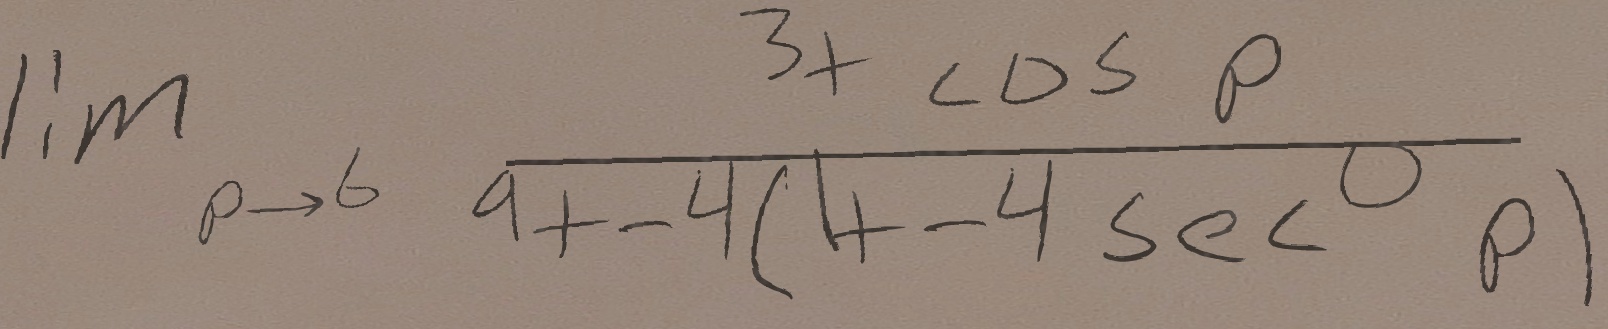 \lim_{p \to 6} \frac{3 + \cos p}{9 + -4(1 + -4 \sec^{0} p)}